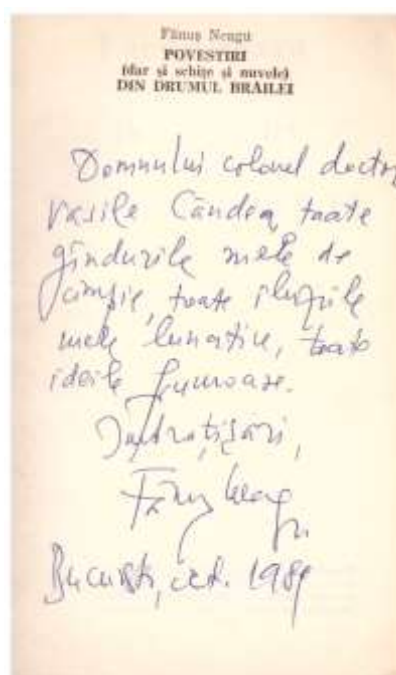 Fănuș Neagu
POVESTIRI
(dar și schițe și nuvele)
DIN DRUMUL BRĂILEI
Domnului colonel doctor
Vasile Cândea, toate
gîndurile mele de
cîmpie, toate iluziile
mele lunatice, toate
ideile frumoase.
Îmbrățișări,
Fănuș Neagu
București, oct. 1989